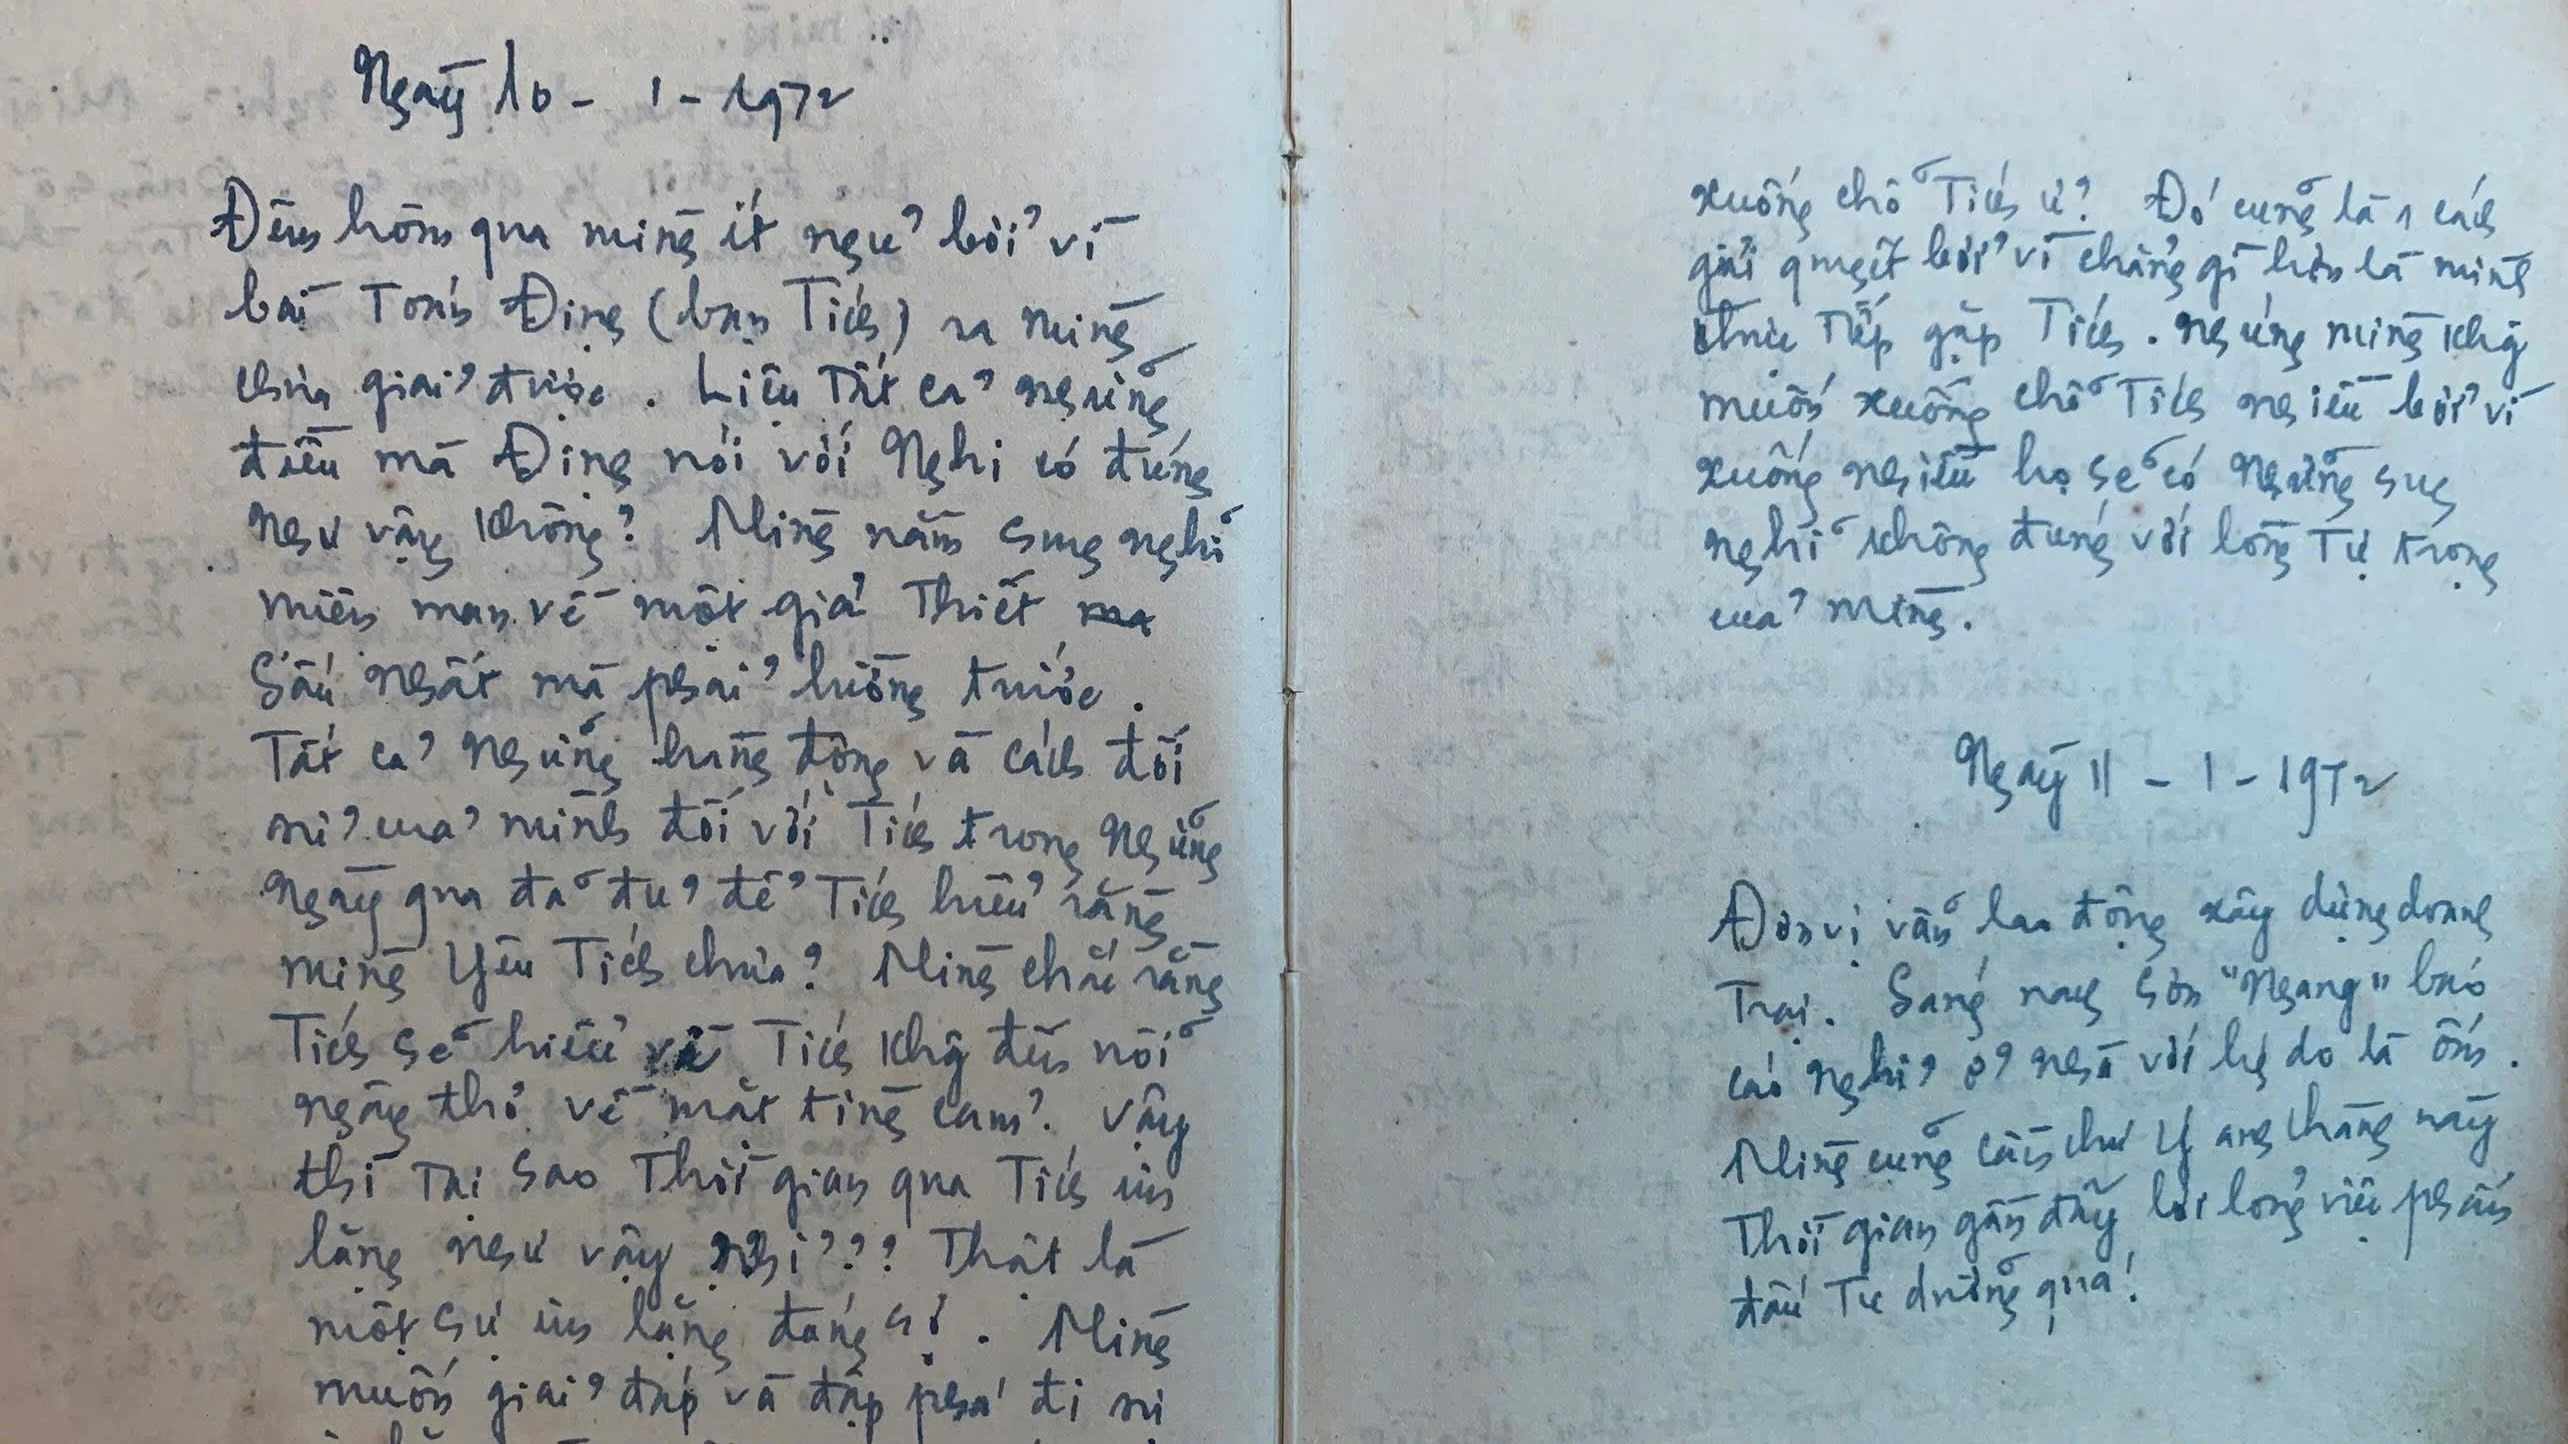 Ngày 10 - 1 - 1972
Đêm hôm qua mình ít ngủ bởi vì
bài Toán Định (bạn Tích) ra mình
chưa giải được. Liệu Tất cả những
điều mà Định nói với Nghi có đúng
như vậy không? Mình nằm suy nghĩ
miên man về một giả Thiết ma
Sầu nhất mà phải lường trước.
Tất cả những hành động và cách đối
xử của mình đối với Tích trong những
ngày qua đã đủ để Tích hiểu rằng
mình yêu Tích chưa? Mình chắc rằng
Tích sẽ hiểu vì Tích khg đến nỗi
ngây thơ về mặt tình cảm. Vậy
thì Tại Sao Thời gian qua Tích im
lặng như vậy nhỉ??? Thật là
một sự im lặng đáng sợ. Mình
muốn giải đáp và đập phá đi sự
xuống chỗ Tích ư? Đó cũng là 1 cách
giải quyết bởi vì chẳng gì hơn là mình
trực Tiếp gặp Tích. Nhưng mình khg
muốn xuống chỗ Tích nhiều bởi vì
xuống nhiều họ sẽ có những suy
nghĩ không đúng với lòng Tự trọng
của mình.
Ngày 11 - 1 - 1972
Đơn vị vẫn lao động xây dựng doanh
Trại. Sáng nay Sơn "Ngang" báo
cáo nghỉ ở nhà với lý do là ốm.
Mình cũng cần chú ý anh chàng này
Thời gian gần đây lơi lỏng việc phấn
đấu Tu dưỡng quá!